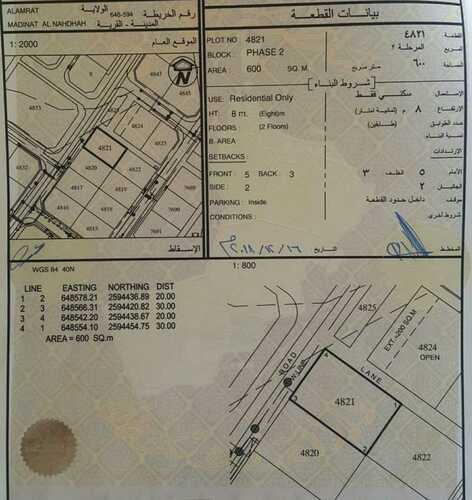 ALAMRAT الولاية
648-594 رقم الخريطة
MADINAT AL NAHDHAH المدينة - القرية
1: 2000 الموقع العام
4821
4820
4819
4818
4816
4817
7600
7601
4824
4823
4845
بيانات القطعة
PLOT NO : 4821 ٤٨٢١ القطعة
BLOCK : PHASE 2 المرحلة ٢ المربع
AREA : 600 SQ. M. متر مربع ٦٠٠ المساحة
شروط البناء
USE: Residential Only سكني فقط الاستعمال
HT: 8 m. (Eight)m ٨ م (ثمانية امتار) الارتفاع
FLOORS (2 Floors) (طابقين) عدد الطوابق
B. AREA نسبة البناء
SETBACKS الارتدادات
FRONT : 5 BACK : 3 الخلف ٣ الأمام ٥
SIDE : 2 ٢ الجانبين
PARKING : Inside داخل حدود القطعة موقف
CONDITIONS : شروط أخرى
المخطط
تاريخ
الاسقاط
WGS 84 40N
1: 800
LINE EASTING NORTHING DIST
1 2 648578.21 2594436.89 20.00
2 3 648566.31 2594420.82 30.00
3 4 648542.20 2594438.67 20.00
4 1 648554.10 2594454.75 30.00
AREA = 600 SQ.m
4825
EXT.=200 SQ.M
4824
OPEN
ROAD
LANE
4
1
4821
3
2
4820
4822